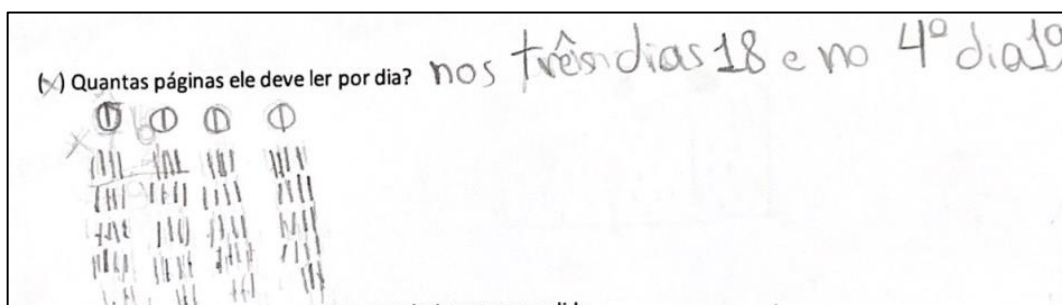 (x) Quantas páginas ele deve ler por dia? nos três dias 18 e no 4º dia 19